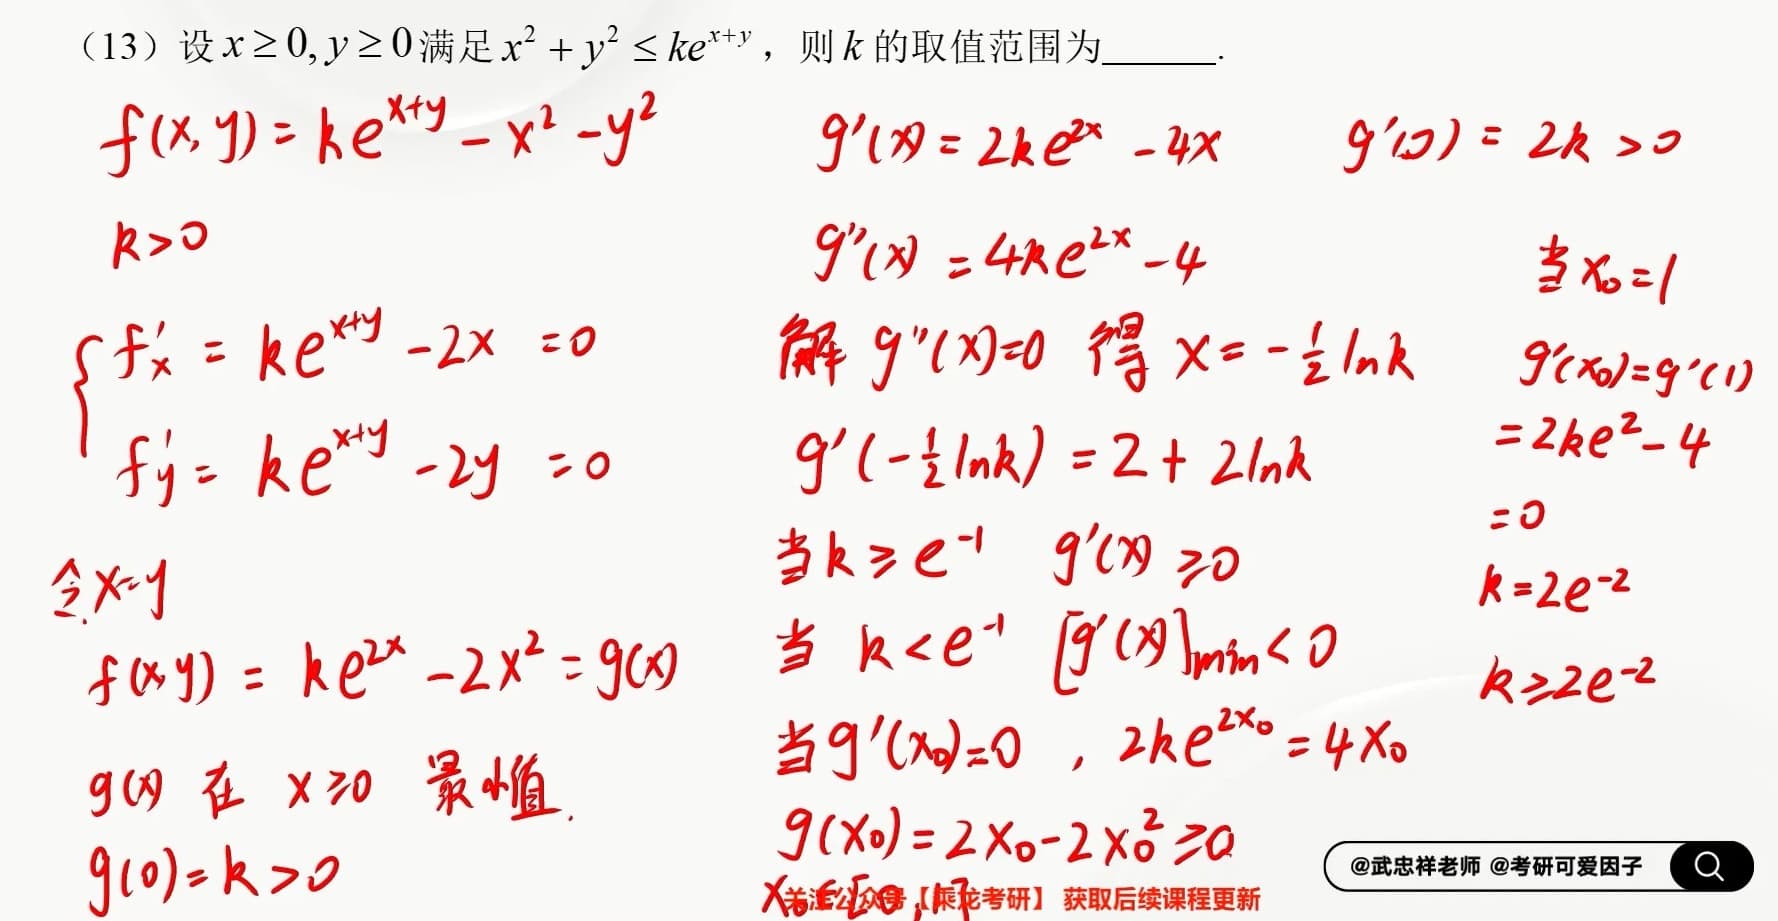 （13）设 x ≥ 0, y ≥ 0 满足 x² + y² ≤ ke^{x+y}，则 k 的取值范围为______.
f(x,y) = ke^{x+y} - x² - y²
k > 0
{ f'x = ke^{x+y} - 2x = 0
f'y = ke^{x+y} - 2y = 0
令 x=y
f(x,y) = ke^{2x} - 2x² = g(x)
g(x) 在 x ≥ 0 最小值.
g(0) = k > 0
g'(x) = 2ke^{2x} - 4x
g''(x) = 4ke^{2x} - 4
解 g''(x)=0 得 x = -½ lnk
g'(-½ lnk) = 2 + 2lnk
当 k ≥ e^{-1} g'(x) ≥ 0
当 k < e^{-1} [g'(x)]min < 0
当 g'(x₀)=0 , 2ke^{2x₀} = 4x₀
g(x₀) = 2x₀ - 2x₀² ≥ 0
x₀ ∈ [0,1]
g'(0) = 2k > 0
当 x₀ = 1
g'(x₀) = g'(1)
= 2ke² - 4
= 0
k = 2e^{-2}
k ≥ 2e^{-2}
@武忠祥老师 @考研可爱因子
关注公众号【乘龙考研】 获取后续课程更新